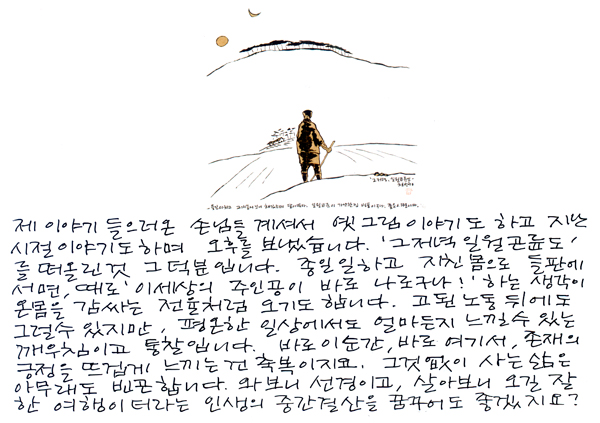 '그저녁, 일월곤륜도'
제 이야기 들으러온 손님들 계셔서 옛그림이야기도 하고 지난
시절이야기도하며 오후를 보냈습니다. '그저녁일월곤륜도'
를 떠올린것 그덕분입니다. 종일일하고 지친몸으로 들판에
서면, 때로 '이세상의 주인공이 바로 나로구나!' 하는 생각이
온몸을 감싸는 전율처럼 오기도 합니다. 고된노동 뒤에도
그럴수 있지만, 평온한 일상에서도 얼마든지 느낄수 있는
깨우침이고 통찰입니다. 바로이순간, 바로 여기서, 존재의
긍정을 뜨겁게 느끼는건 축복이지요. 그것없이 사는 삶은
아무래도 빈곤합니다. 와보니 선경이고, 살아보니 오길 잘
한 여행이더라는 인생의 중간결산을 꿈꾸어도 좋겠지요?